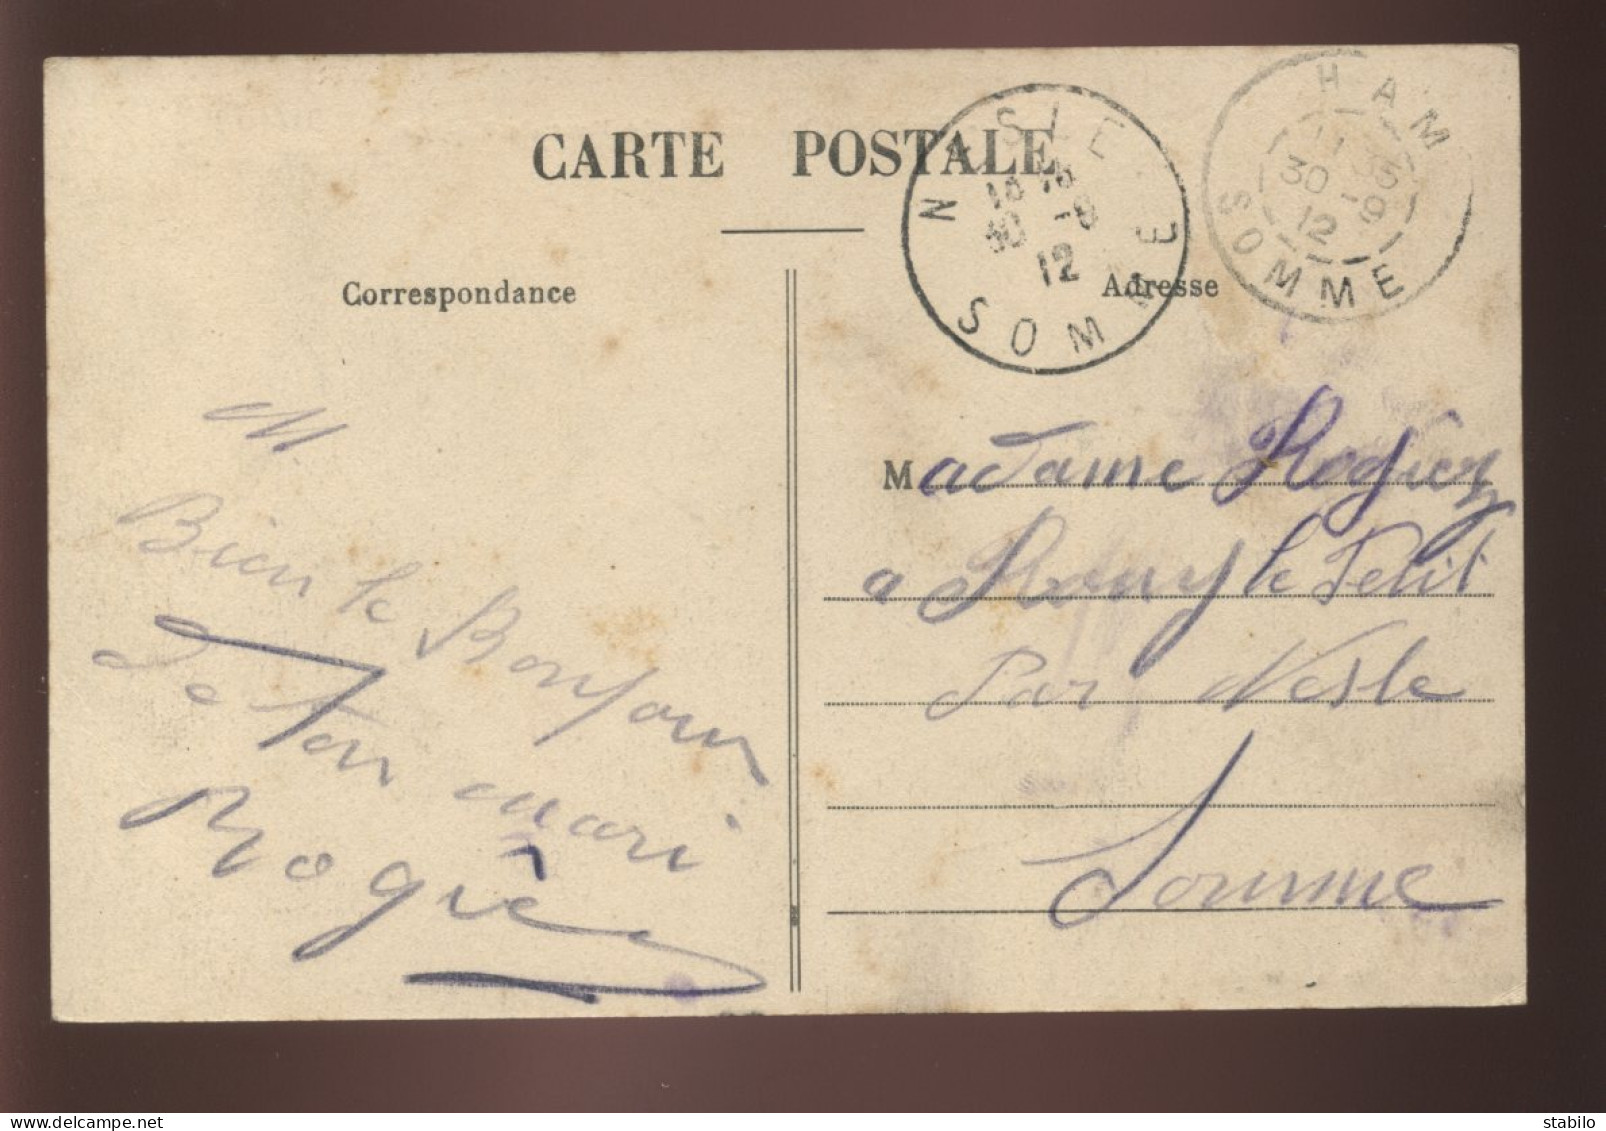 CARTE POSTALE
NESLE
SOMME
30 -9
12
HAM
SOMME
11 35
30 -9
12
Correspondance
Adresse
M
Bien le Bonjour
De ton mari
Rogié
Madame Rogiez
a Romy le Petit
Par Nesle
Somme
stabilo www.delcampe.net